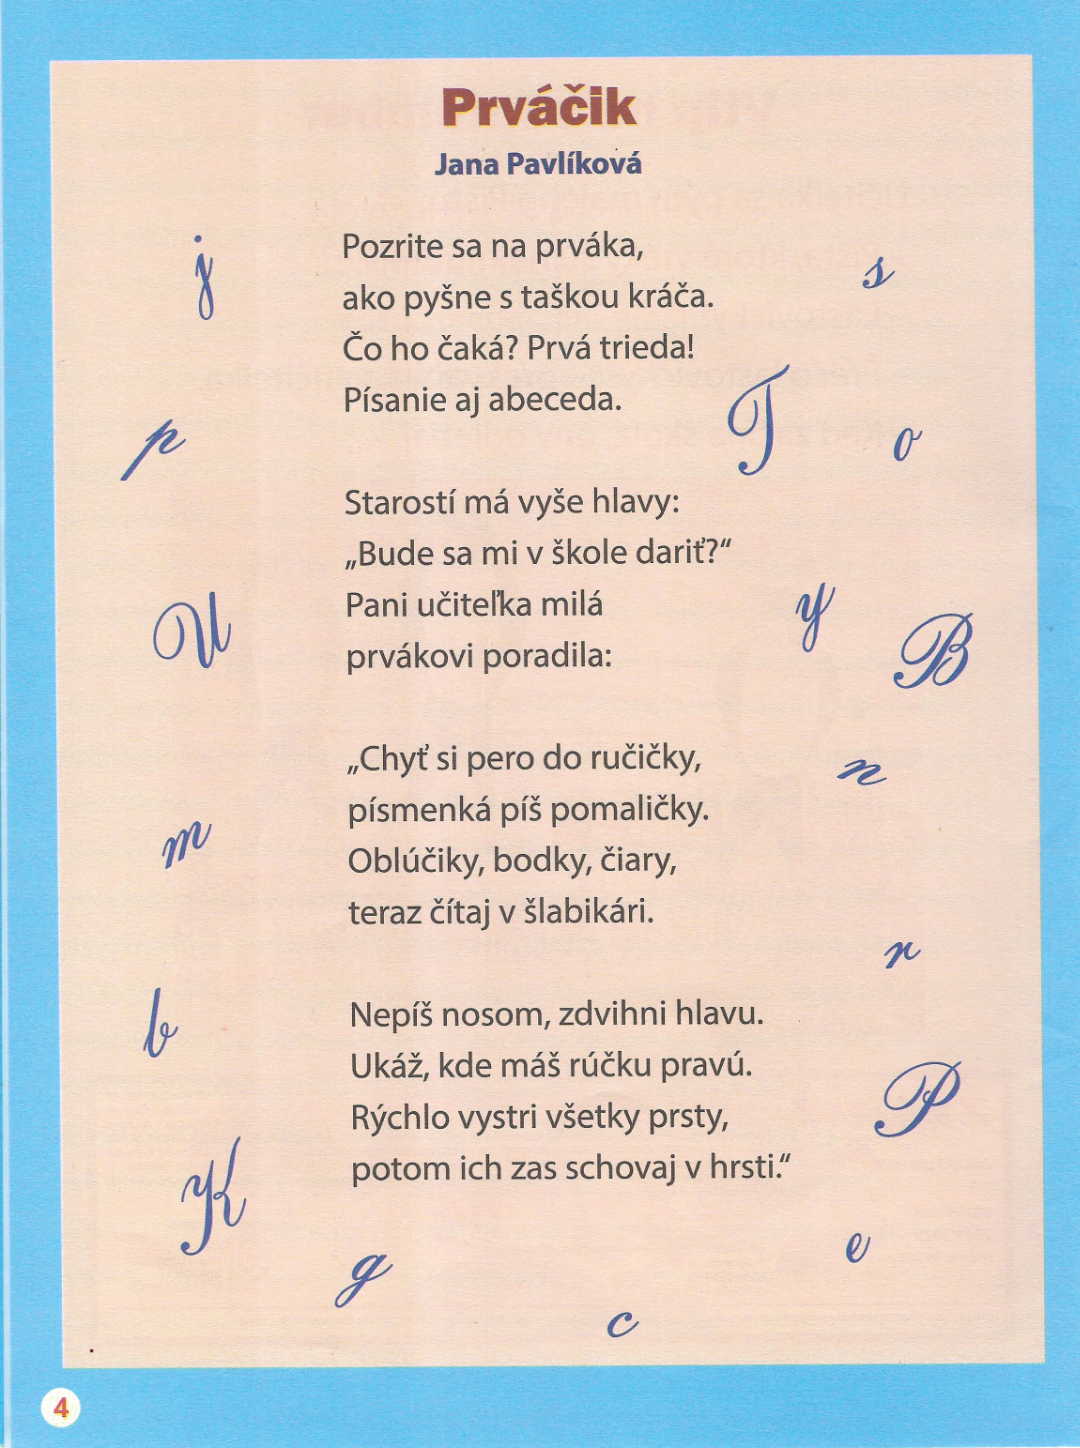 Prváčik
Jana Pavlíková
j
Pozrite sa na prváka,
s
ako pyšne s taškou kráča.
Čo ho čaká? Prvá trieda!
Písanie aj abeceda.
T
p
o
Starostí má vyše hlavy:
„Bude sa mi v škole dariť?“
Pani učiteľka milá
y
U
B
prvákovi poradila:
„Chyť si pero do ručičky,
n
písmenká píš pomaličky.
m
Oblúčiky, bodky, čiary,
teraz čítaj v šlabikári.
r
b
Nepíš nosom, zdvihni hlavu.
Ukáž, kde máš rúčku pravú.
P
Rýchlo vystri všetky prsty,
potom ich zas schovaj v hrsti.“
K
e
g
c
4